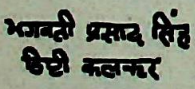 भगवती प्रसाद सिंह
डिप्टी कलक्टर